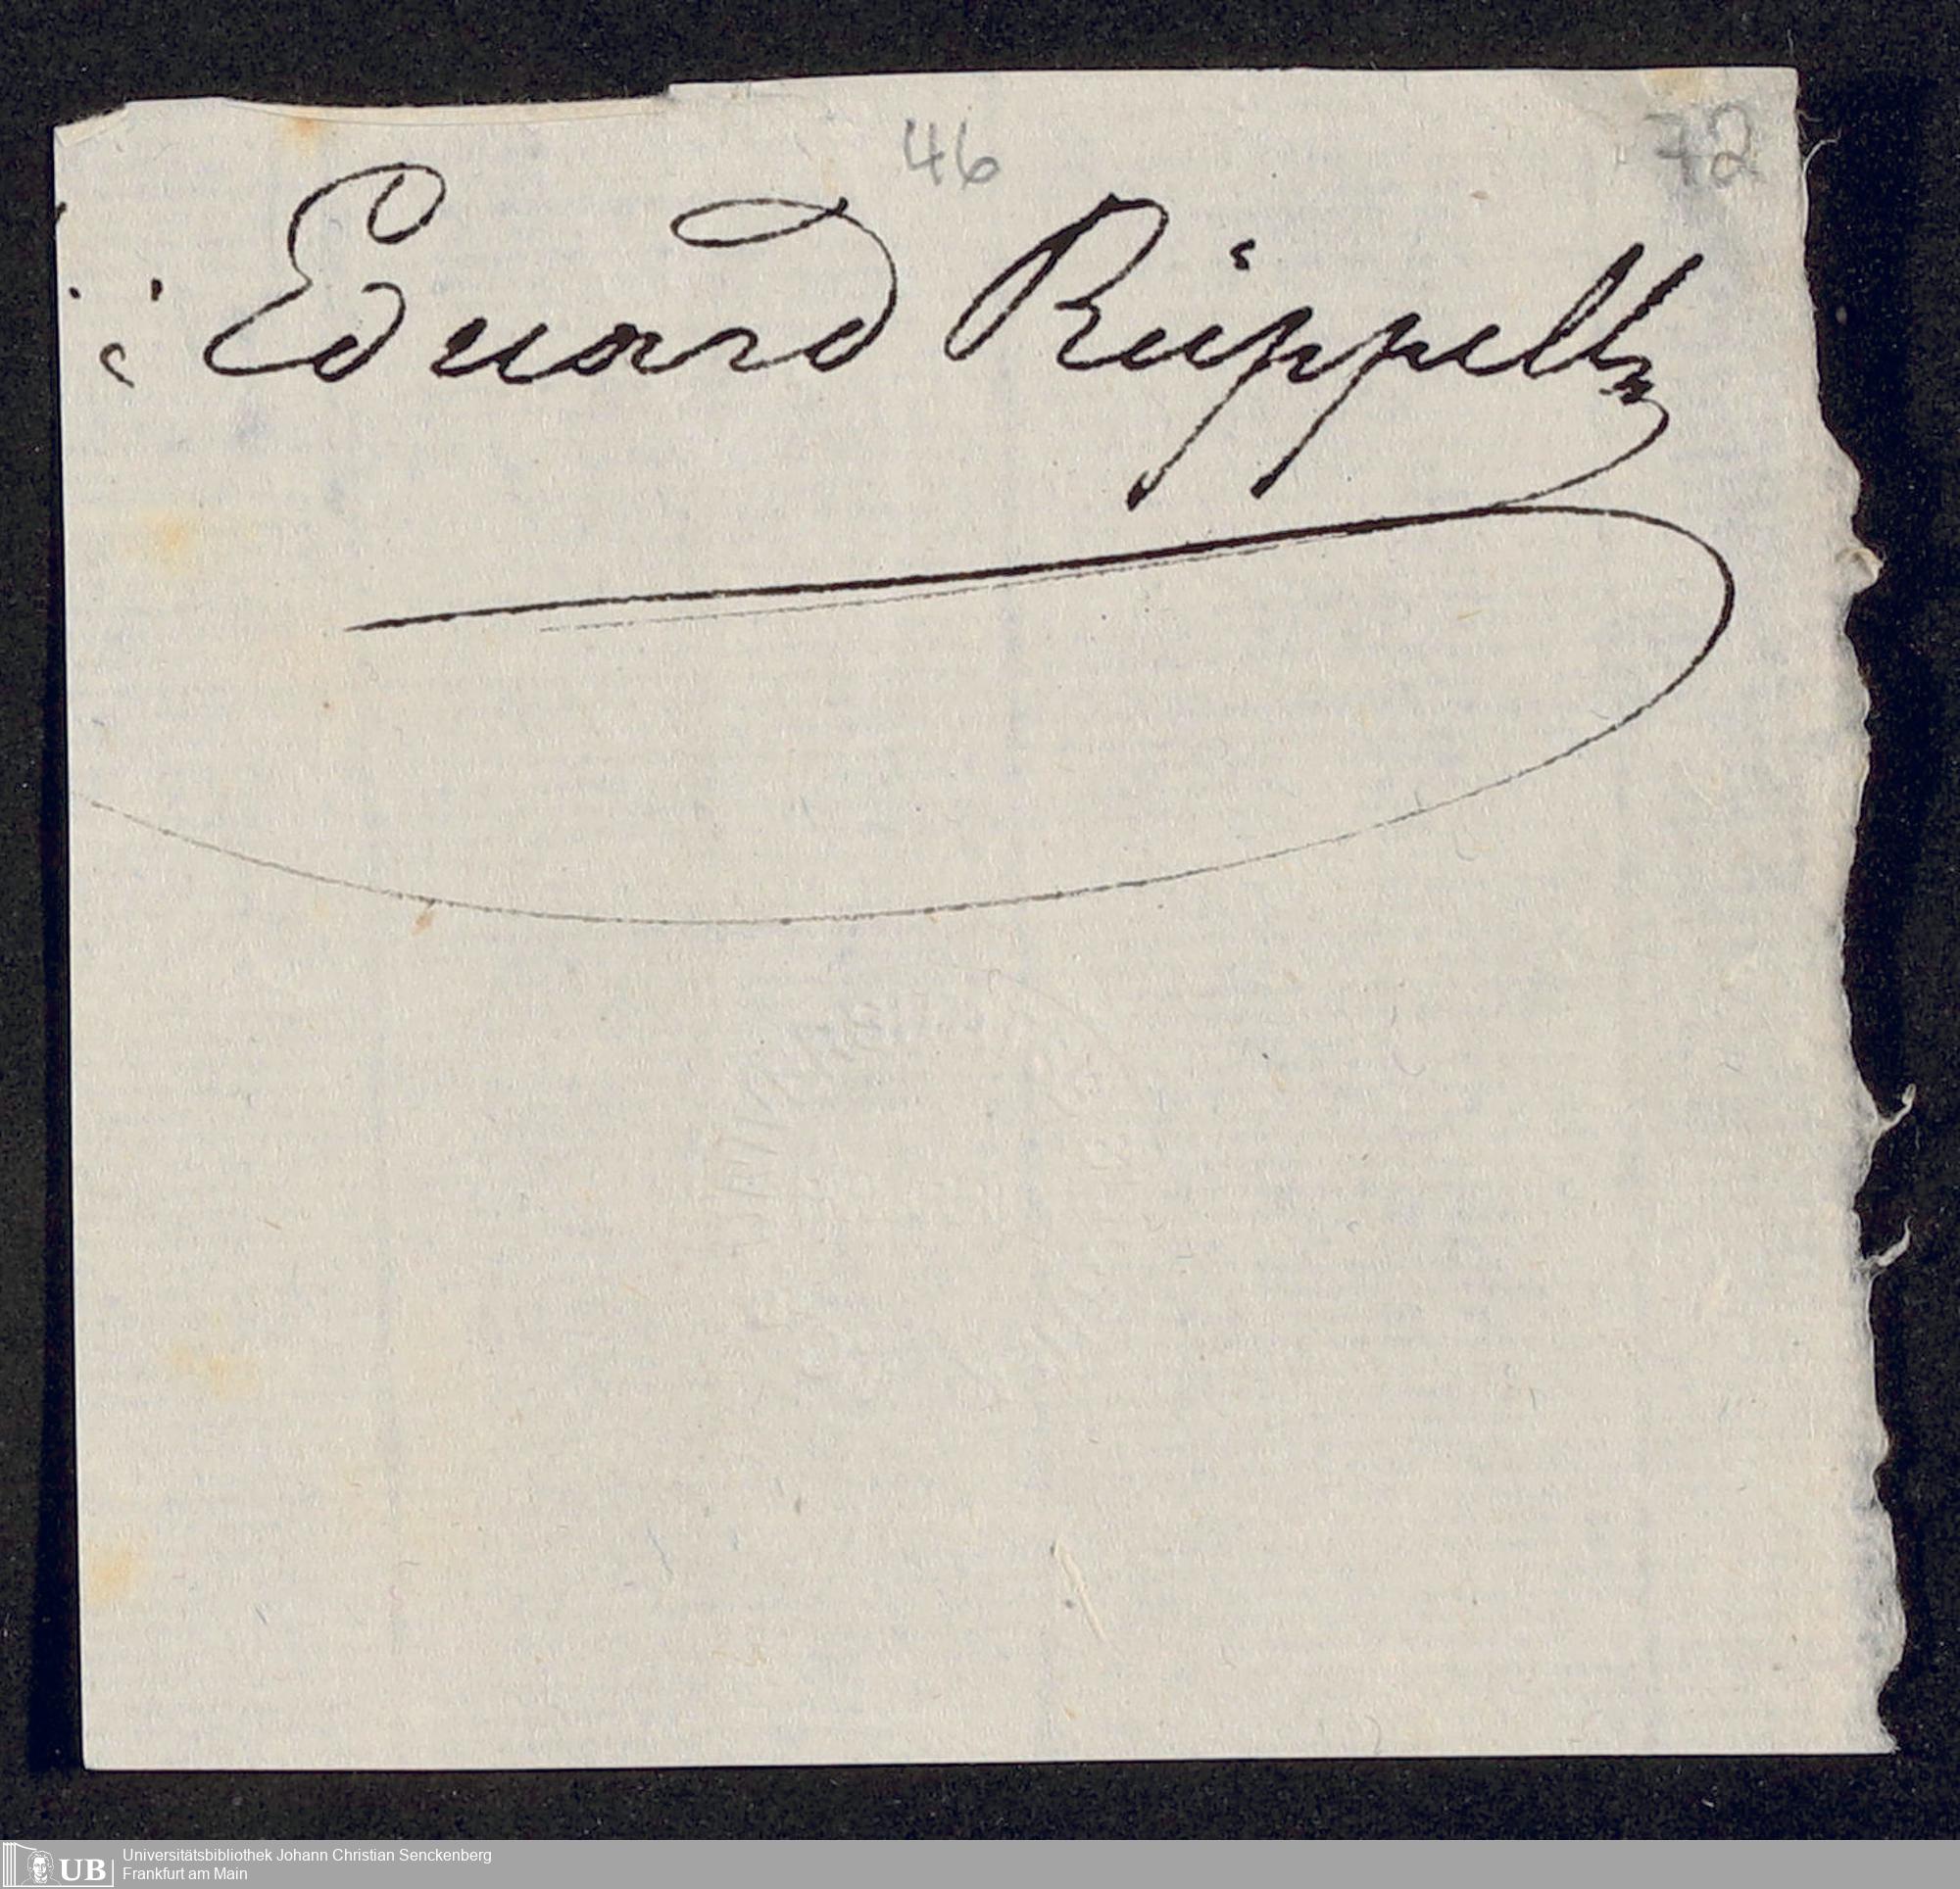 46
72
Eduard Rüppell
UB
Universitätsbibliothek Johann Christian Senckenberg
Frankfurt am Main